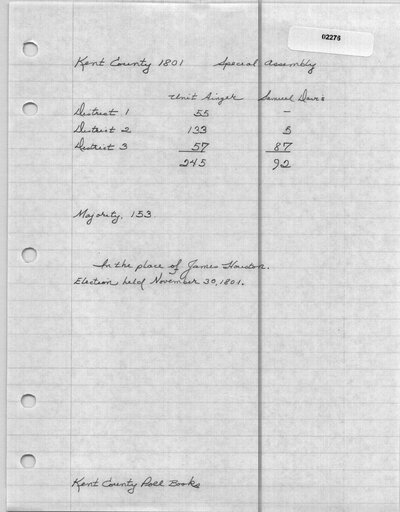 02276
Kent County 1801 Special Assembly
Unit Singer Samuel Davis
District 1 55 –
District 2 133 5
District 3 57 87
245 92
Majority, 153.
In the place of James Houston.
Election held November 30, 1801.
Kent County Poll Books